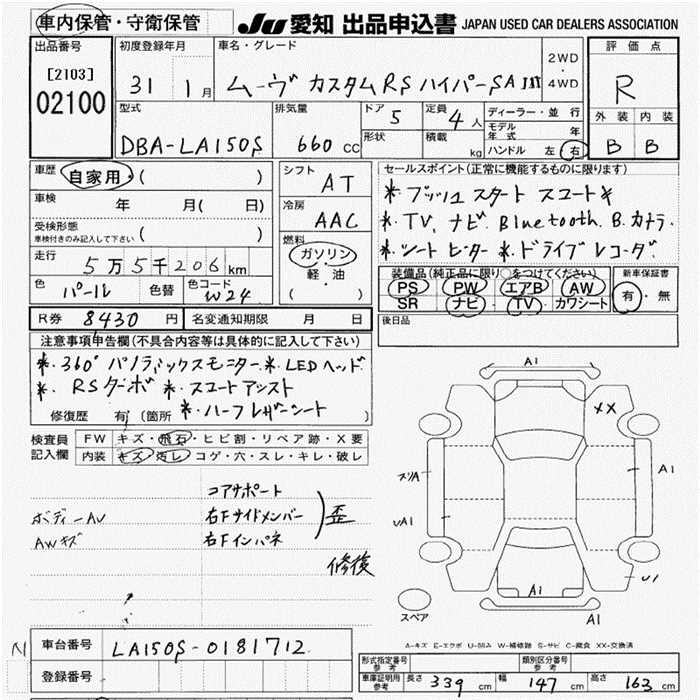 車内保管・守衛保管
JU 愛知 出品申込書 JAPAN USED CAR DEALERS ASSOCIATION
出品番号 初度登録年月 車名・グレード 2WD・4WD 評価点
[2103] 02100 31 1月 ムーヴ カスタムRS ハイパーSAⅢ R
型式 排気量 ドア 5 定員 4人 ディーラー・並行 外装 内装
DBA-LA150S 660cc 形状 積載 kg モデル年式 年 B B
ハンドル 左 右
車歴 自家用・( ) シフト AT セールスポイント(正常に機能するものに限ります)
車検 年 月( 日) 冷房 AAC *プッシュスタート スコートキ
受検形態 *TV.ナビ.Bluetooth.B.カメラ.
車検付きのみ記入して下さい ( ) 燃料 *シートヒーター *ドライブレコーダ.
走行 5万5千206km ガソリン 軽・油 ( ) 装備品(純正品に限り○をつけてください) 新車保証書
色 パール 色替 色コード W24 PS PW エアB AW 有・無
SR ナビ TV カワシート
R券 8430円 名変通知期限 月 日 後日品
注意事項申告欄(不具合内容等は具体的に記入して下さい)
*.360°パノラミックスモニター.*.LEDヘッド.
*. RSターボ *.スコートアシスト
*.ハーフレザーシート
修復歴 有 (箇所
検査員記入欄 FW キズ・飛石・ヒビ割・リペア跡・X要
内装 キズ・汚レ・コゲ・穴・スレ・キレ・破レ
コアサポート
ボディーAU 右Fサイドメンバー 歪
AWキズ 右Fインパネ
修復
A1
XX
A1
スリA
UA1
U1
A1
A1
スペア
A-キズ E-エクボ U-凹み W-補修跡 S-サビ C-腐食 XX-交換済
車台番号 LA150S-0181712
登録番号
型式指定番号 参考 類別区分番号 参考
車庫証明用 参考 長さ 339cm 幅 147cm 高さ 163cm